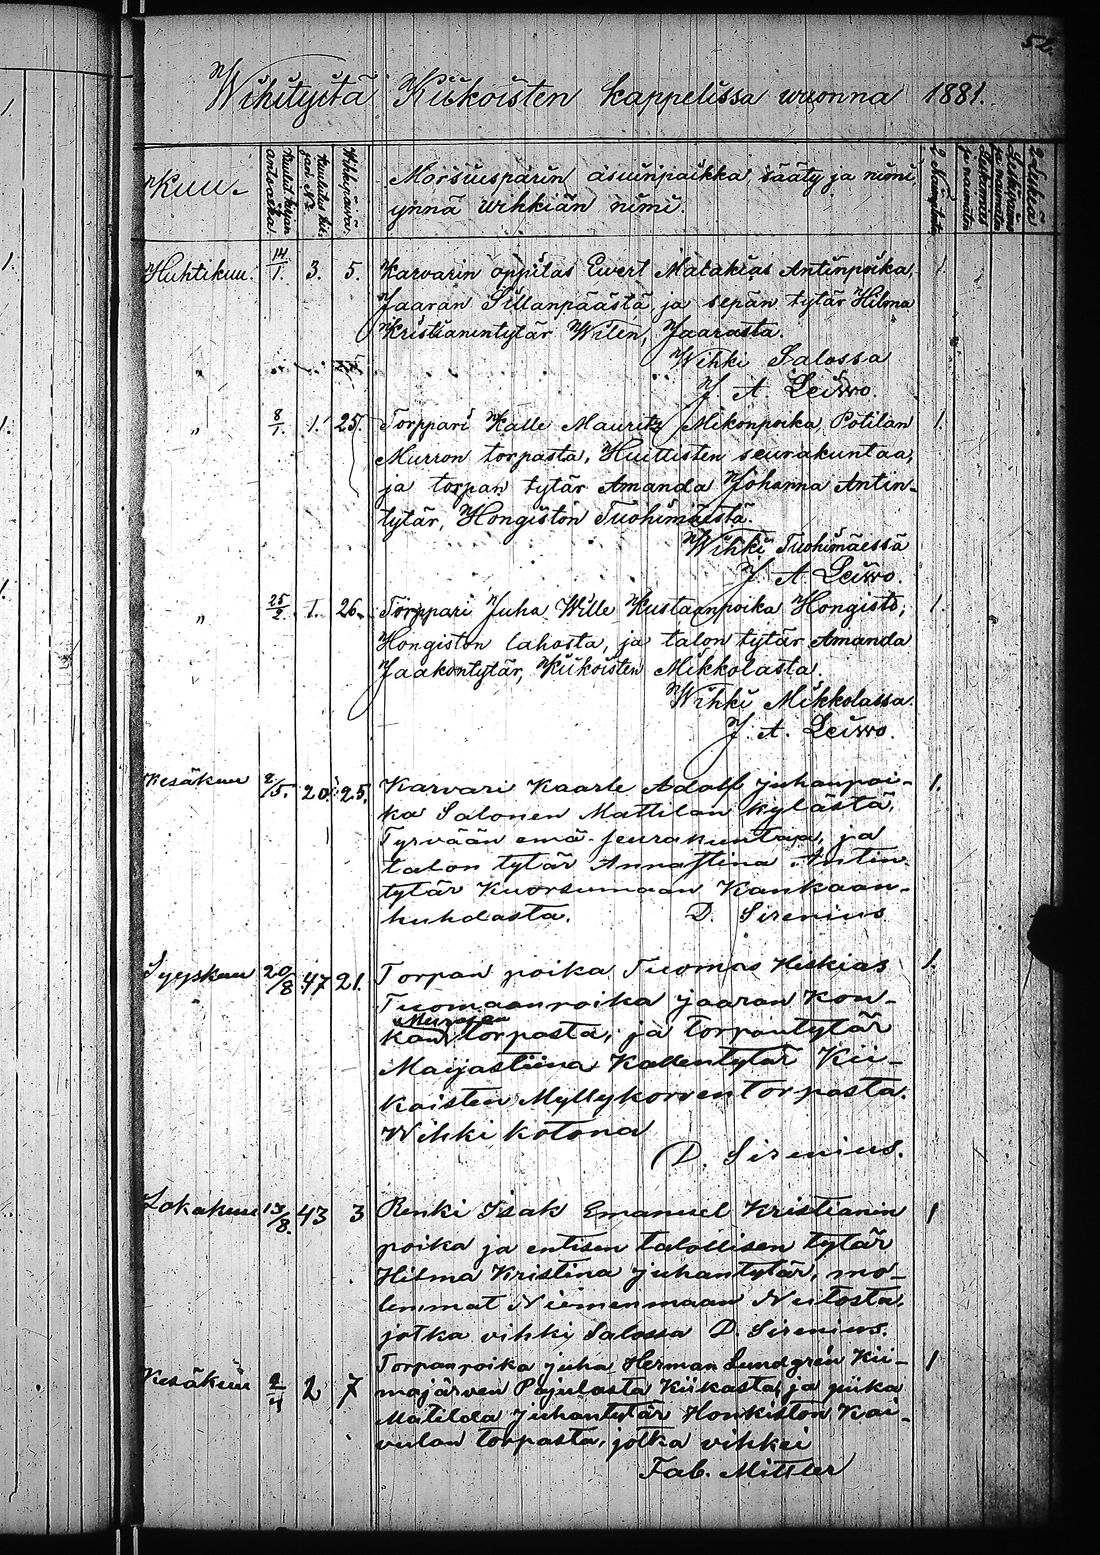 52.
Wihityitä Kiikoisten kappelissa wuonna 1881.
Kuu. Wihkipäivä. Morsiusparin asuinpaikka, sääty ja nimi,
ynnä wihkiän nimi.
Huhtikuu. 14/1. 3. 5. Karvarin oppilas Ewert Malakias Antinpoika, 1.
Jaaran Sillanpäästä, ja sepän tytär Hilma
Kristianintytär Wilen, Jaarasta.
Wihki Salossa
J. A. Leiwo.
" 8/1. 1. 25. Torppari Kalle Mauritz Mikonpoika, Potilan 1.
Murron torpasta, Huittisten seurakuntaa,
ja torpan tytär Amanda Johanna Antin-
tytär, Hongiston Tuohimäestä.
Wihki Tuohimäessä
J. A. Leiwo.
" 25/2. 1. 26. Torppari Juha Wille Kustaanpoika Hongisto, 1.
Hongiston lahosta, ja talon tytär Amanda
Jaakontytär, Kiikoisten Mikkolasta.
Wihki Mikkolassa.
J. A. Leiwo.
Kesäkuu 2/5. 20. 25. Karvari Kaarle Adolf juhanpoi- 1.
ka Salonen Mattilan kylästä,
Tyrvään emä-seurakuntaa, ja
talon tytär Annastina Antin
tytär Kuorsumaan Kankaan-
huhdasta. D. Sirenius
Syyskuu 20/8 47 21. Torpan poika Tuomas Heskias 1.
Tuomaanpoika jaaran Kon-
kan torpasta, ja torpantytär
Maijastiina Kallentytär Kii-
kaisten Myllykorven torpasta.
Wihki kotona
D. Sirenius.
Lokakuu 13/8. 43 3 Renki Isak Emanuel Kristianin 1
poika ja entisen talollisen tytär
Hilma Kristina juhantytär, mo-
lemmat Niemenmaan Neitosta,
jotka vihki Salossa D. Sirenius.
Kesäkuu 2/4 2 7 Torpanpoika juha Herman Lundgrén Kii- 1
majärven Pajulasta Kiikasta, ja piika
Matilda juhantytär Honkiston Kai-
vulan torpasta, jotka vihkei
Fab. Mittler